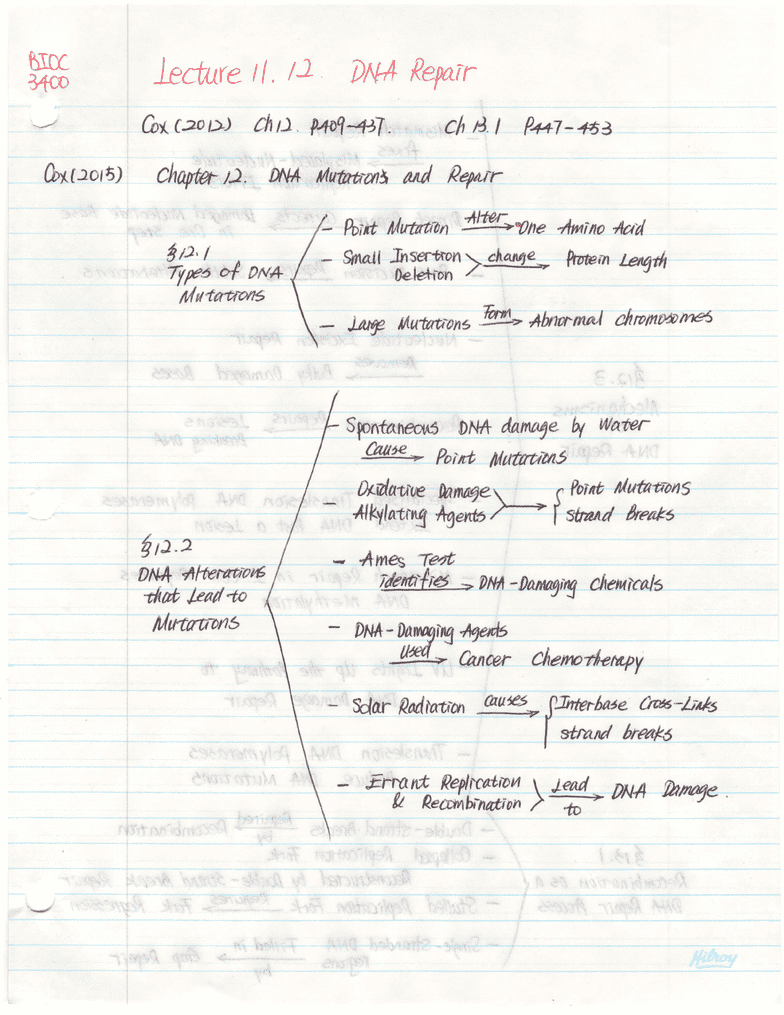 BIOC
3400
Lecture 11.12. DNA Repair
Cox (2012) Ch12. P409-437. Ch 13.1 P447-453
Cox (2015) Chapter 12. DNA Mutations and Repair
§12.1
Types of DNA
Mutations
- Point Mutation Alter → One Amino Acid
- Small Insertion
Deletion change → Protein Length
- Large Mutations Form → Abnormal chromosomes
§12.2
DNA Alterations
that Lead to
Mutations
- Spontaneous DNA damage by Water
Cause → Point Mutations
- Oxidative Damage
Alkylating Agents → { Point Mutations
strand Breaks
- Ames Test
identifies → DNA-Damaging Chemicals
- DNA-Damaging Agents
Used → Cancer Chemotherapy
- Solar Radiation causes → { Interbase Cross-Links
strand breaks
- Errant Replication
& Recombination } Lead to → DNA Damage.
Hilroy